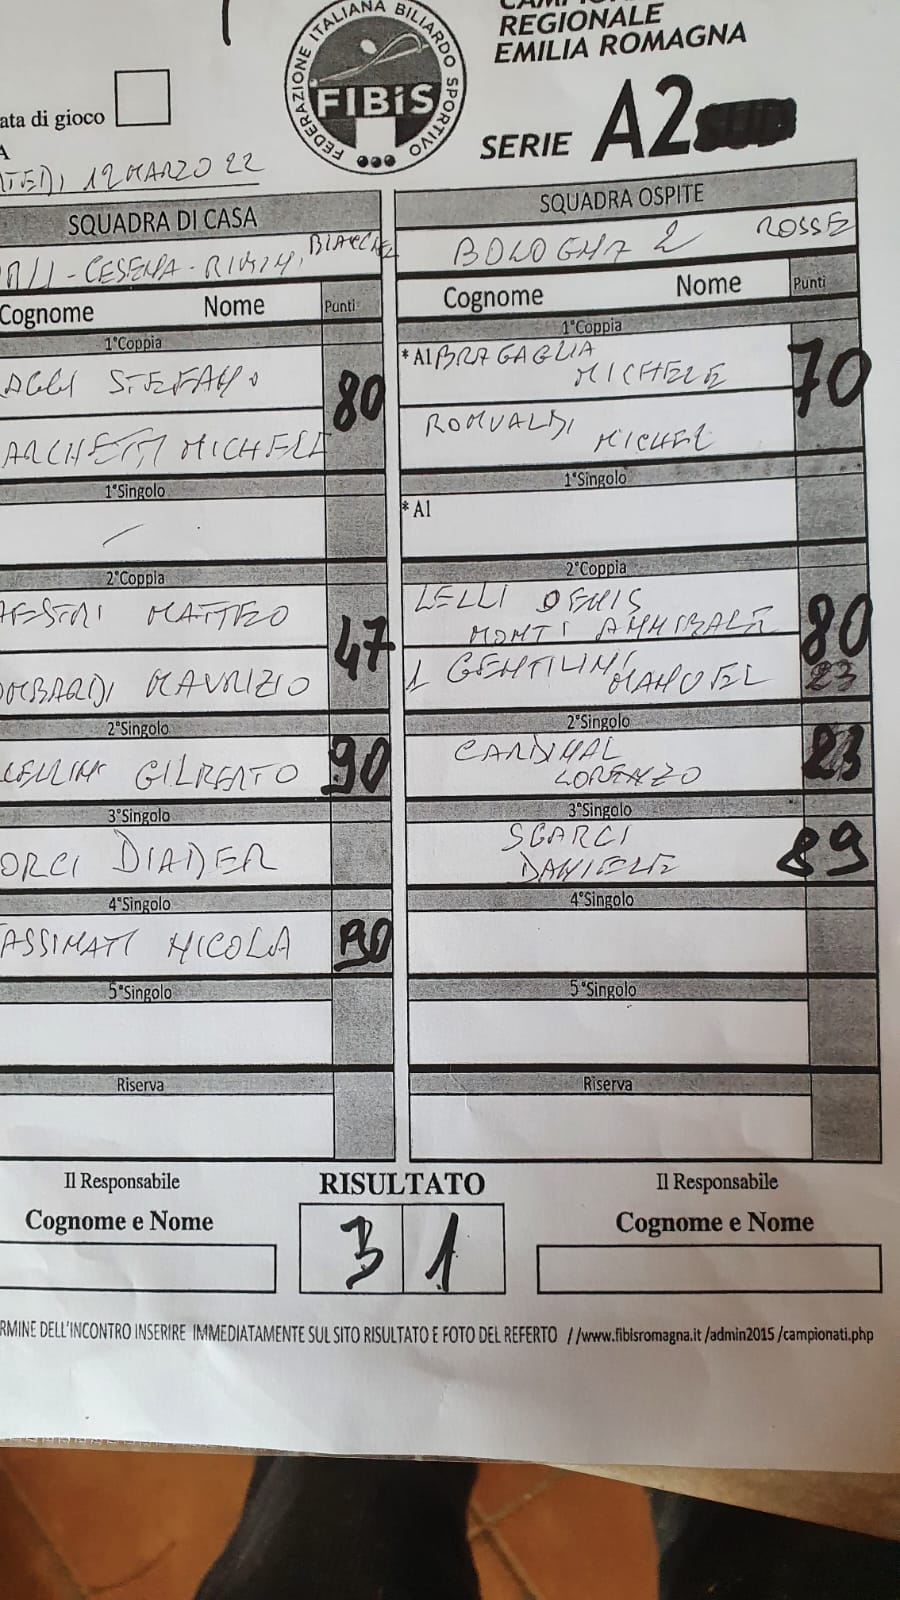 FEDERAZIONE ITALIANA BILIARDO SPORTIVO
FIBiS
REGIONALE
EMILIA ROMAGNA
SERIE A2
ata di gioco
A
12 MARZO 22
SQUADRA DI CASA
SQUADRA OSPITE
CESENA - RIMINI
BOLOGNA 2 ROSSE
Cognome Nome Punti
Cognome Nome Punti
1°Coppia
1°Coppia
AGLI STEFANO 80
*A1 BRAGAGLIA MICHELE 70
ARCHETTI MICHELE
ROMUALDI MICHEL
1°Singolo
1°Singolo
*A1
2°Coppia
2°Coppia
AESTRI MATTEO 47
LELLI DENIS 80
MONTI ANNIBALE
OMBARDI MAURIZIO
1 GENTILINI MANUEL 23
2°Singolo
2°Singolo
CELLINI GILBERTO 90
CARDINAL LORENZO 23
3°Singolo
3°Singolo
ORCI DIADER
SGARCI DANIELE 89
4°Singolo
4°Singolo
ASSINATI NICOLA 90
5°Singolo
5°Singolo
Riserva
Riserva
Il Responsabile RISULTATO Il Responsabile
Cognome e Nome 3 1 Cognome e Nome
RMINE DELL'INCONTRO INSERIRE IMMEDIATAMENTE SUL SITO RISULTATO E FOTO DEL REFERTO //www.fibisromagna.it /admin2015 /campionati.php